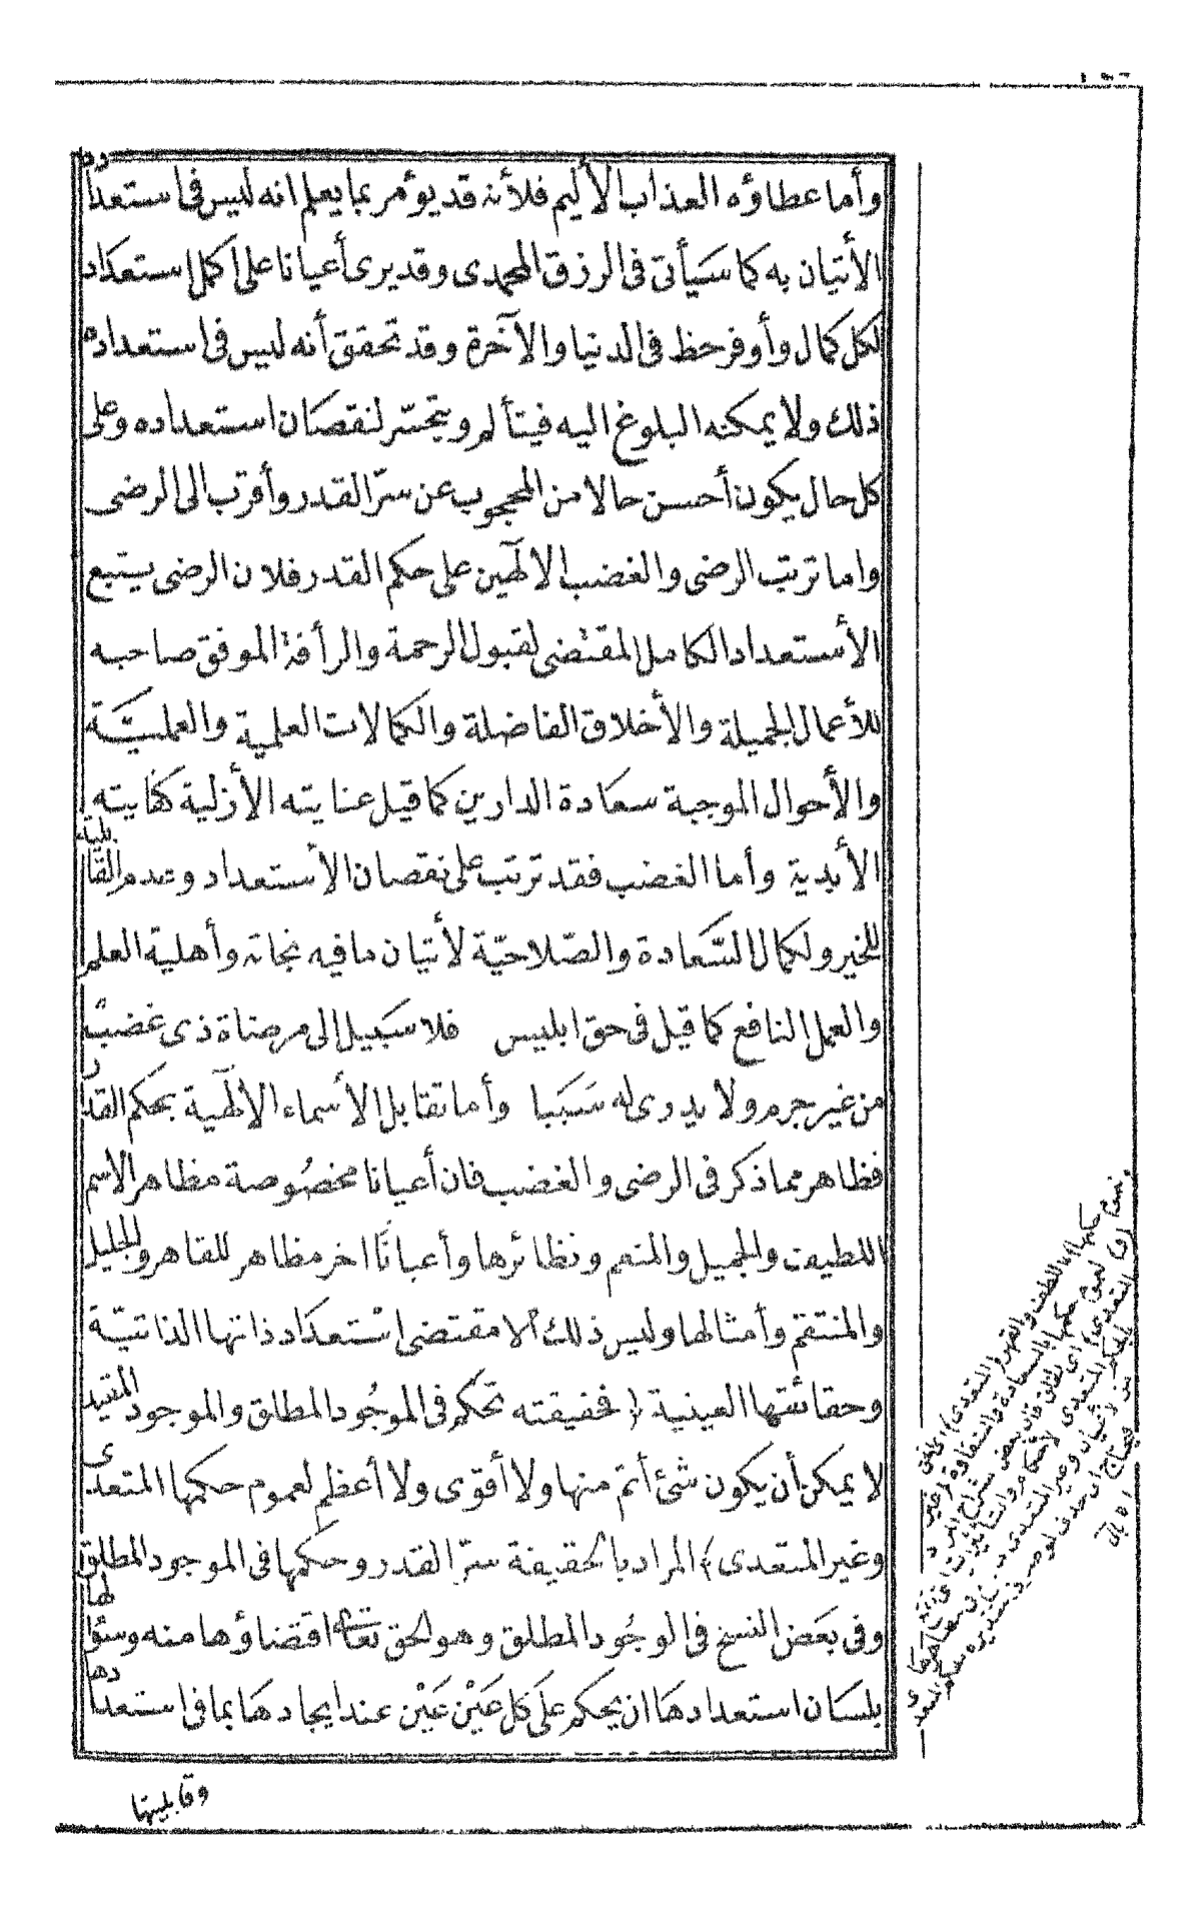 وأما عطاؤه العذاب الأليم فلأنه قد يؤمر بما يعلم انه ليس فى استعداده
الأتيان به كما سيأتى فى الرزق المحمدى وقد يرى أعيانا على أكمل استعداد
لكل كمال وأوفر حظ فى الدنيا والآخرة وقد تحقق أنه ليس فى استعداده
ذلك ولا يمكنه البلوغ اليه فيتألم ويتحسّر لنقصان استعداده وعلى
كل حال يكون أحسن حالا من المحجوب عن سرّ القدر وأقرب الى الرضى
واما ترتب الرضى والغضب الالٓهين على حكم القدر فلان الرضى يستبع
الأستعداد الكامل المقتضى لقبول الرحمة والرأفة الموفق صاحبه
للأعمال الجميلة والأخلاق الفاضلة والكمالات العلمية والعمليّة
والأحوال الموجبة سعادة الدارين كما قيل عنايته الأزلية كفايته
الأبدية وأما الغضب فقد ترتب على نقصان الأستعداد وعدم القابلية
للخير ولكمال السّعادة والصّلاحيّة لأتيان ما فيه نجاته وأهلية العلم
والعمل النافع كما قيل فى حق ابليس فلا سبيل الى مرضاة ذى غضب
من غير جرم ولا يدرى له سببا وأما تقابل الأسماء الالٓهية بحكم القدر
فظاهر مما ذكر فى الرضى والغضب فان أعيانا مخصُوصة مظاهر الاسم
اللطيف والجميل والمنعم ونظائرها وأعيانًا اخر مظاهر للقاهر والجليل
والمنتقم وأمثالها وليس ذلك الا مقتضى استعداد ذاتها الذاتيّة
وحقائقها العينية ( فحقيقته تحكم فى الموجُود المطلق والموجود المقيد
لا يمكن أن يكون شئ أتم منها ولا أقوى ولا أعظم لعموم حكمها المتعدى
وغير المتعدى ) المراد بالحقيقة سرّ القدر وحكمها فى الموجود المطلق
وفى بعض النسخ فى الوجُود المطلق وهو الحق تعالى اقتضاؤها منه وسئوالها
بلسان استعدادها ان يحكم على كل عَيْن عَيْن عند ايجادها بما فى استعدادها
وقابليتها